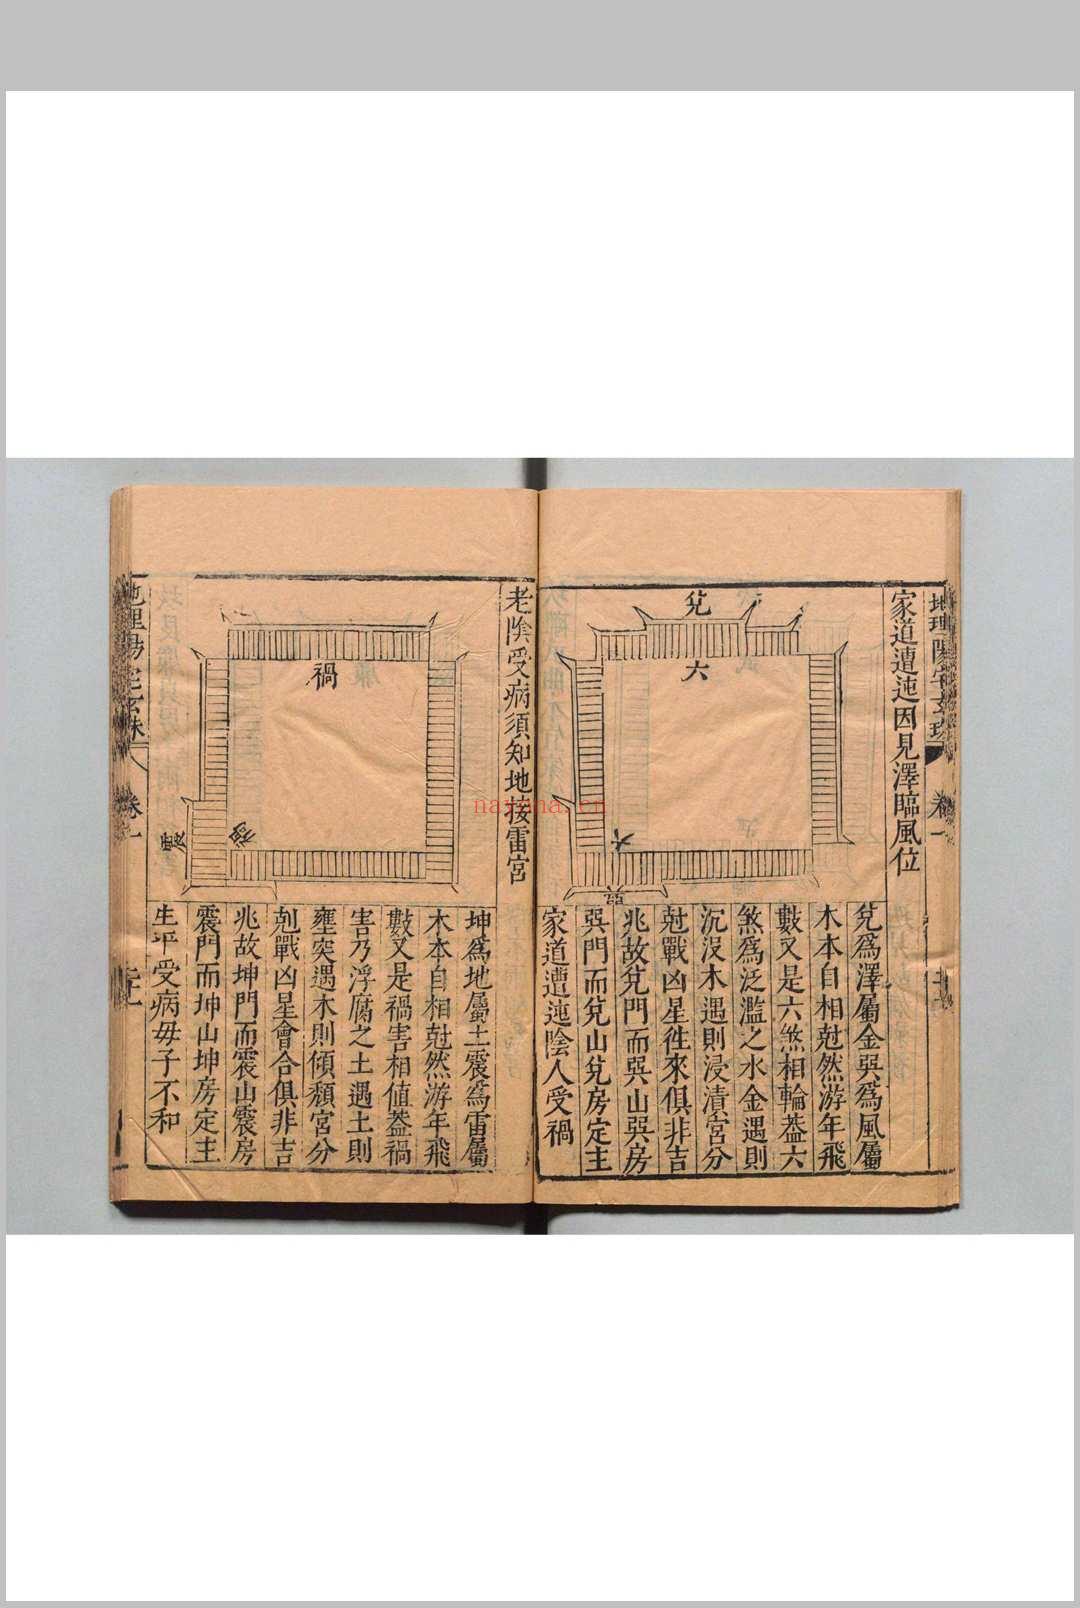 地理陽宅玄珠 卷一
家道邅迍因見澤臨風位
兌
六
六
兌爲澤屬金巽爲風屬
木本自相尅然游年飛
數又是六煞相輪蓋六
煞爲泛濫之水金遇則
沉沒木遇則浸漬宮分
尅戰凶星徃來俱非吉
兆故兌門而巽山巽房
巽門而兌山兌房定主
家道邅迍陰人受禍
老陰受病須知地接雷宮
禍
禍
震
坤爲地屬土震爲雷屬
木本自相尅然游年飛
數又是禍害相值蓋禍
害乃浮腐之土遇土則
壅突遇木則傾頹宮分
剋戰凶星會合俱非吉
兆故坤門而震山震房
震門而坤山坤房定主
生平受病母子不和
地理陽宅玄珠
卷一
nayona.cn